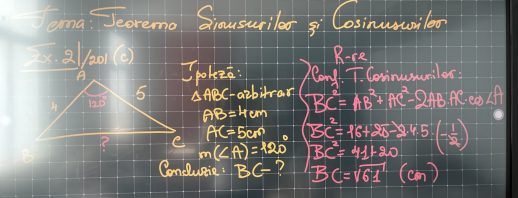 Tema: Teorema Sinusurilor și Cosinusurilor
Ex. 2|/201 (c)
A
4
120°
5
B
?
C
Ipoteză:
△ABC-arbitrar
AB=4cm
AC=5cm
m(∠A)=120°
Concluzie: BC-?
R-re
Conf. T. Cosinusurilor:
BC²=AB²+AC²-2AB·AC·cos∠A
BC²=16+25-2·4·5·(-1/2)
BC²=41+20
BC=√61 (cm)